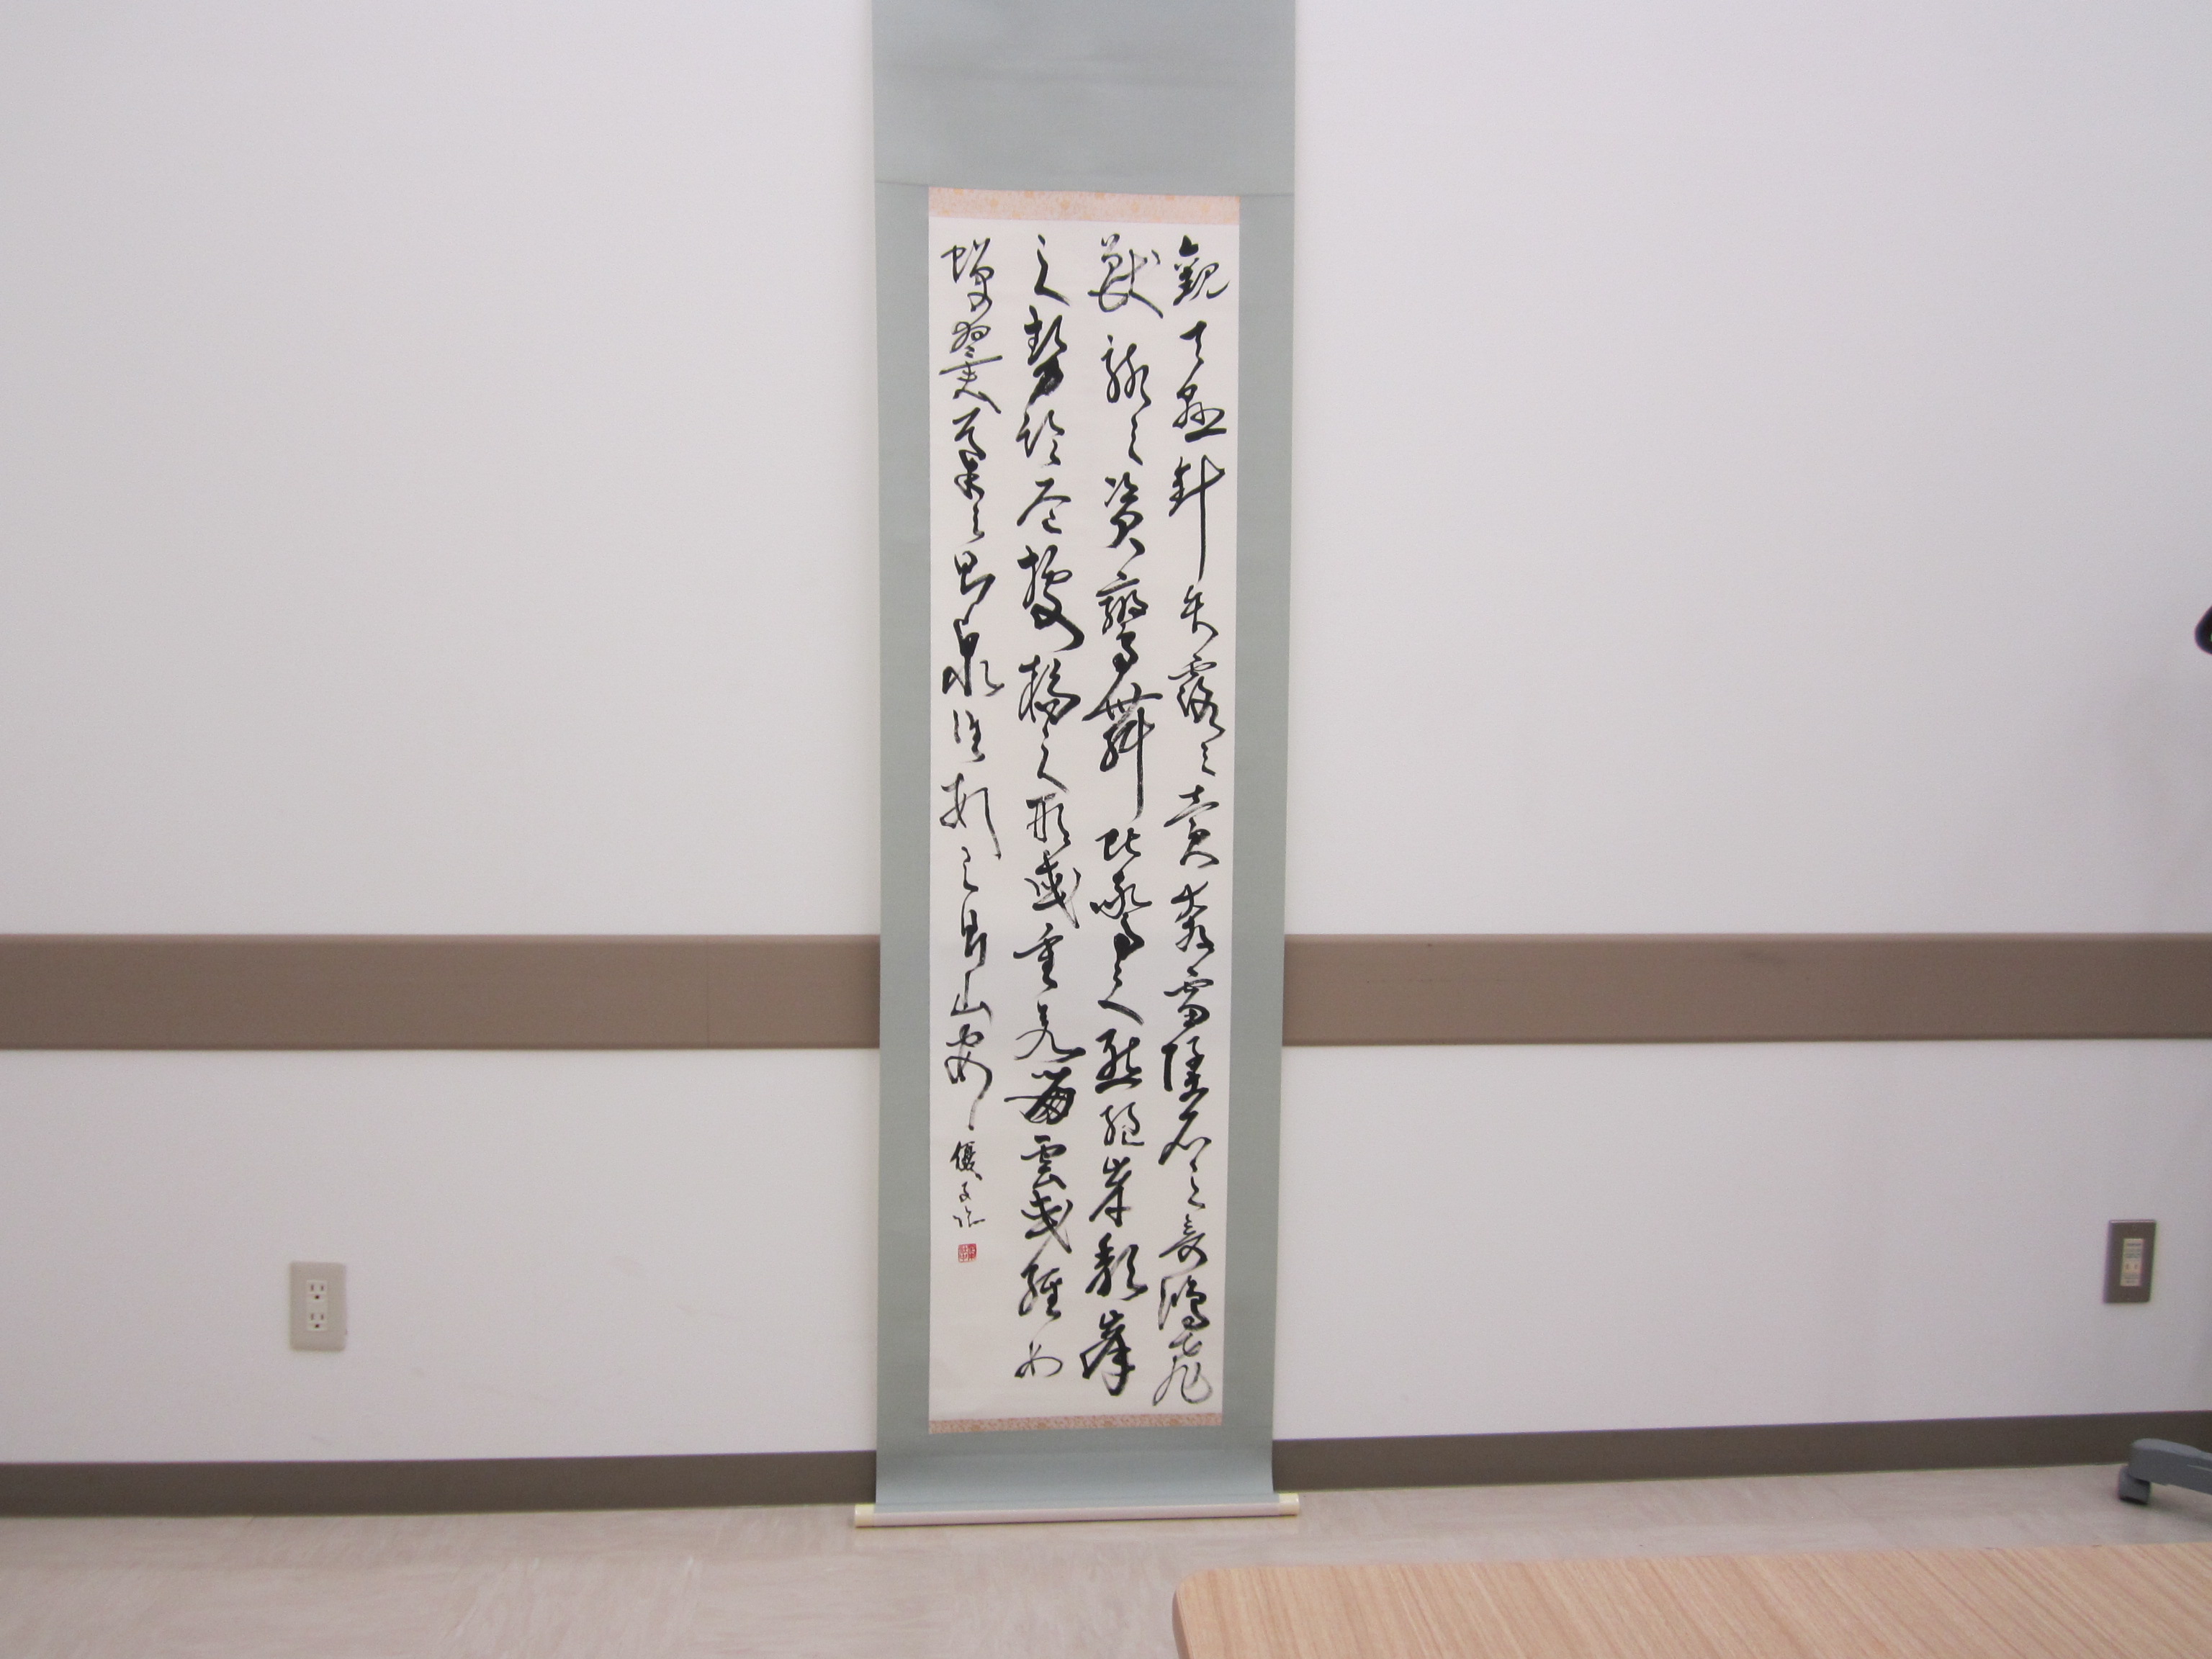 觀夫懸針垂露之異奔雷墜石之奇鴻飛
獸駭之資鸞舞蛇驚之態絕岸頹峯
之勢臨危據槁之形或重若崩雲或輕如
蟬翼導之則泉注頓之則山安
優子臨